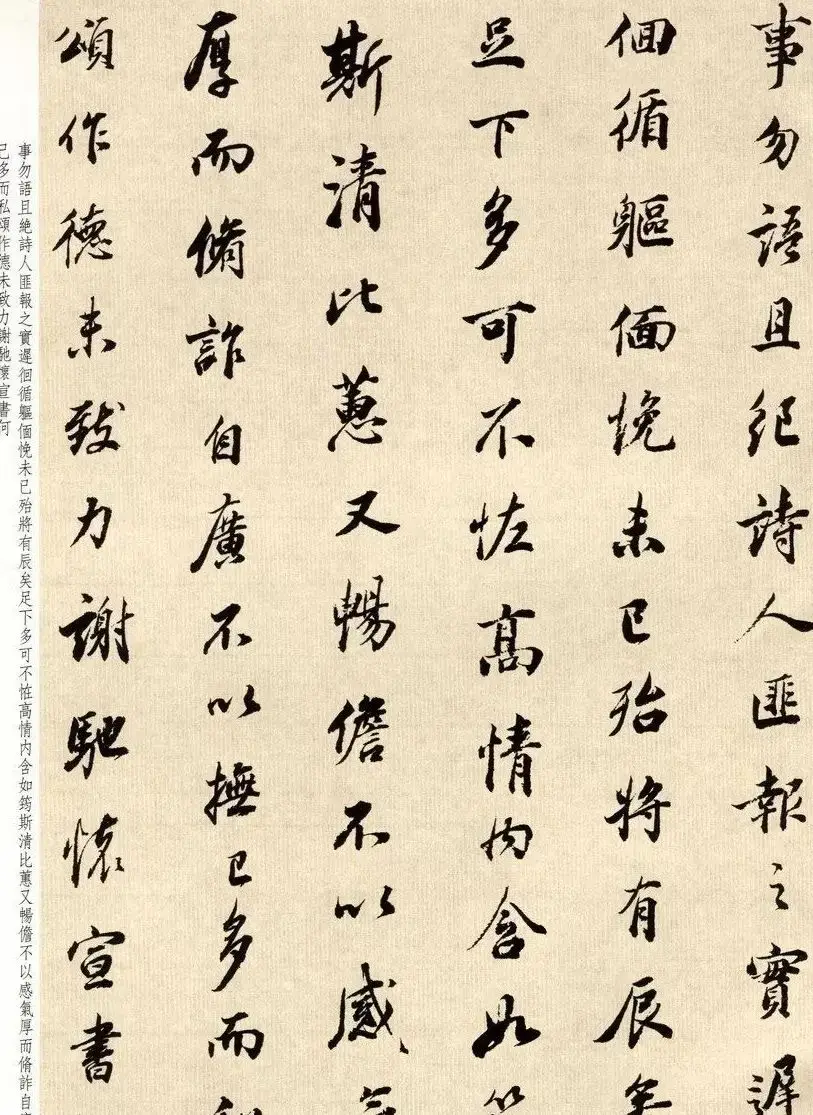 事勿語且絶詩人匪報之實遲
佪循軀偭悗未已殆將有辰矣
足下多可不恠高情内含如筠
斯清比蕙又暢儋不以感氣
厚而脩詐自廣不以撫已多而私
頌作德未致力謝馳懷宣書
事勿語且絶詩人匪報之實遲徊循軀偭悗未已殆將有辰矣足下多可不恠高情内含如筠斯清比蕙又暢儋不以感氣厚而脩詐自廣
已多而私頌作德未致力謝馳懷宣書何